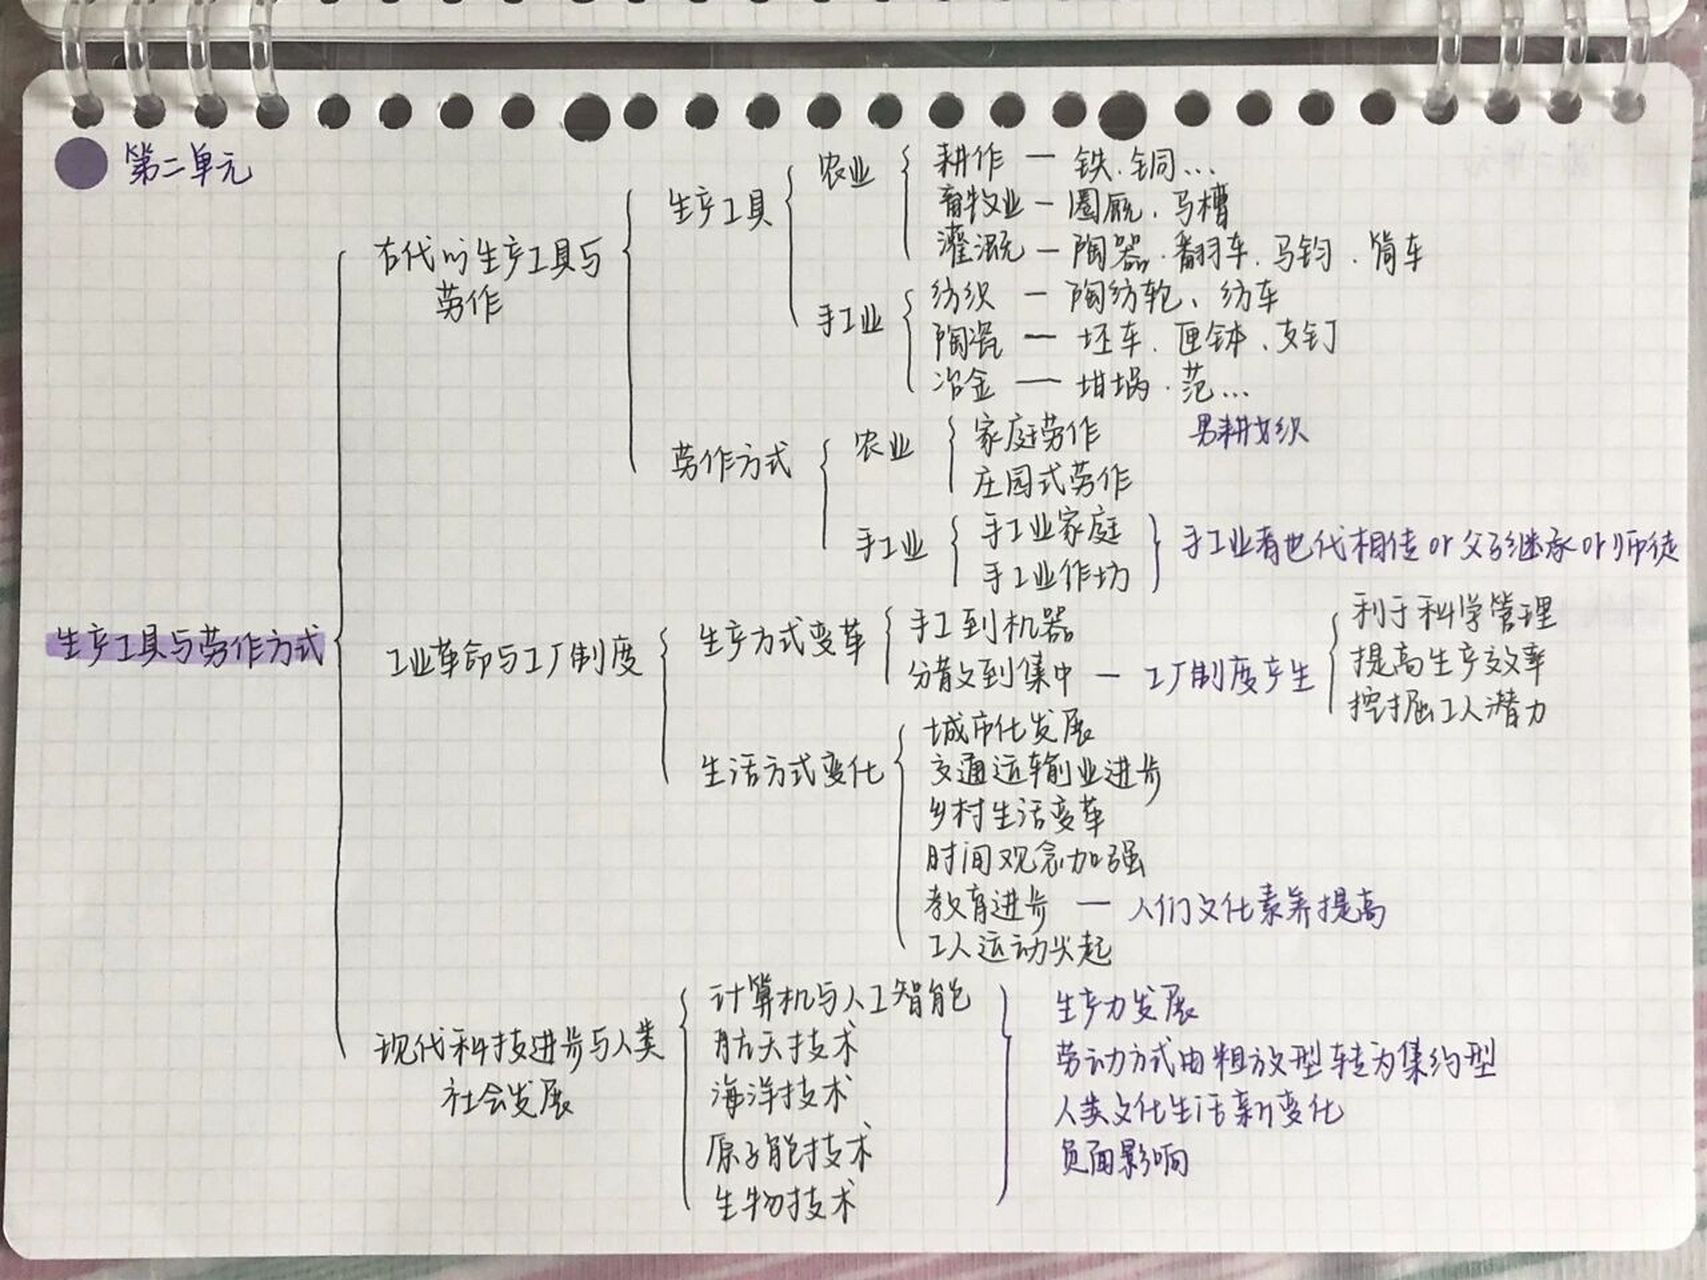 第二单元
生产工具与劳作方式
古代的生产工具与
劳作
生产工具
农业
耕作 — 铁、铜…
畜牧业 — 圈厩、马槽
灌溉 — 陶器、翻车、马钧、筒车
手工业
纺织 — 陶纺轮、纺车
陶瓷 — 坯车、匣钵、支钉
冶金 — 坩埚、范…
劳作方式
农业
家庭劳作 男耕女织
庄园式劳作
手工业
手工业家庭
手工业作坊
手工业者世代相传or父子继承or师徒
工业革命与工厂制度
生产方式变革
手工到机器
分散到集中 — 工厂制度产生
利于科学管理
提高生产效率
挖掘工人潜力
生活方式变化
城市化发展
交通运输业进步
乡村生活变革
时间观念加强
教育进步 — 人们文化素养提高
工人运动兴起
现代科技进步与人类
社会发展
计算机与人工智能
航天技术
海洋技术
原子能技术
生物技术
生产力发展
劳动方式由粗放型转为集约型
人类文化生活新变化
负面影响